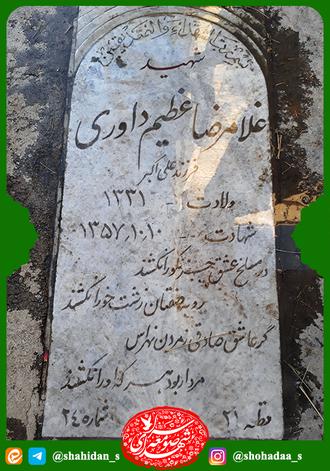 شهید
غلامرضا عظیم داوری
فرزند علی اکبر
ولادت :- ۱۳۳۱
شهادت :- ۱۳۵۷،۱۰،۱۰
در مسلخ عشق جز نکو را نکشند
روبه صفتان زشت خو را نکشند
گر عاشق صادقی ز مردن نهراس
مردار بود هر که او را نکشند
قطعه ۲۱ شماره ۲۴
@shahidan_s
@shohadaa_s